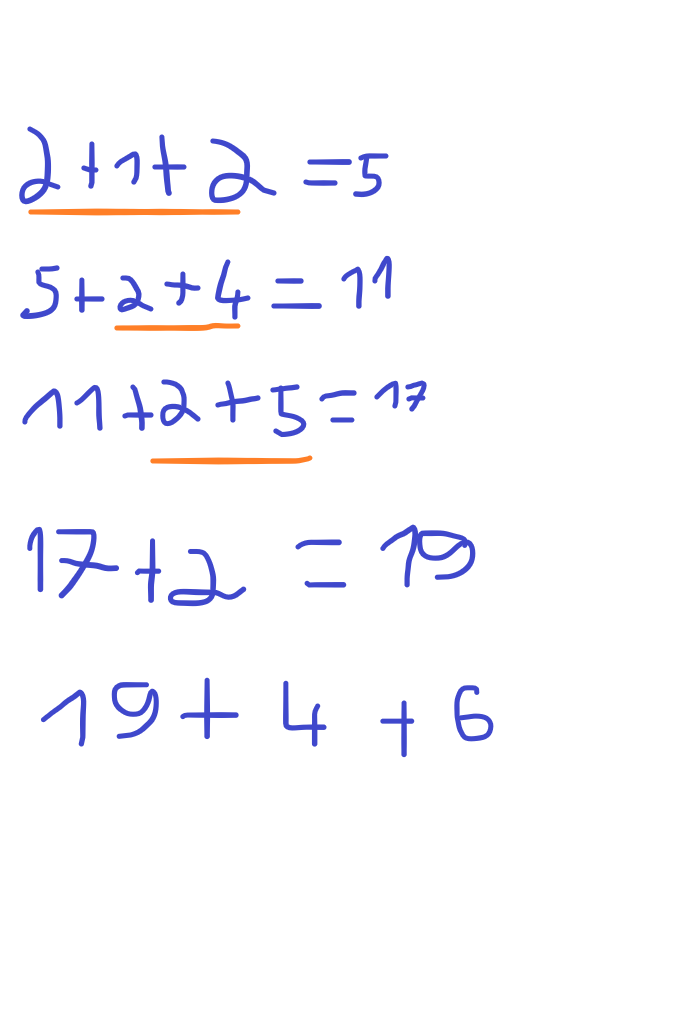 2+1+2=5
5+2+4=11
11+2+5=17
17+2=19
19+4+6